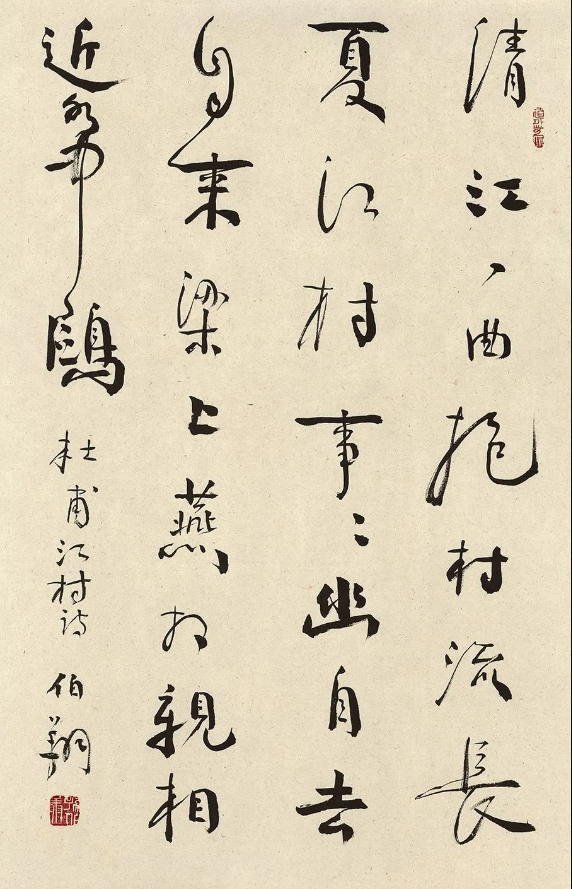 清江一曲抱村流長
夏江村事〻幽自去
自来梁上燕相親相
近水中鷗 杜甫江村詩 伯翔